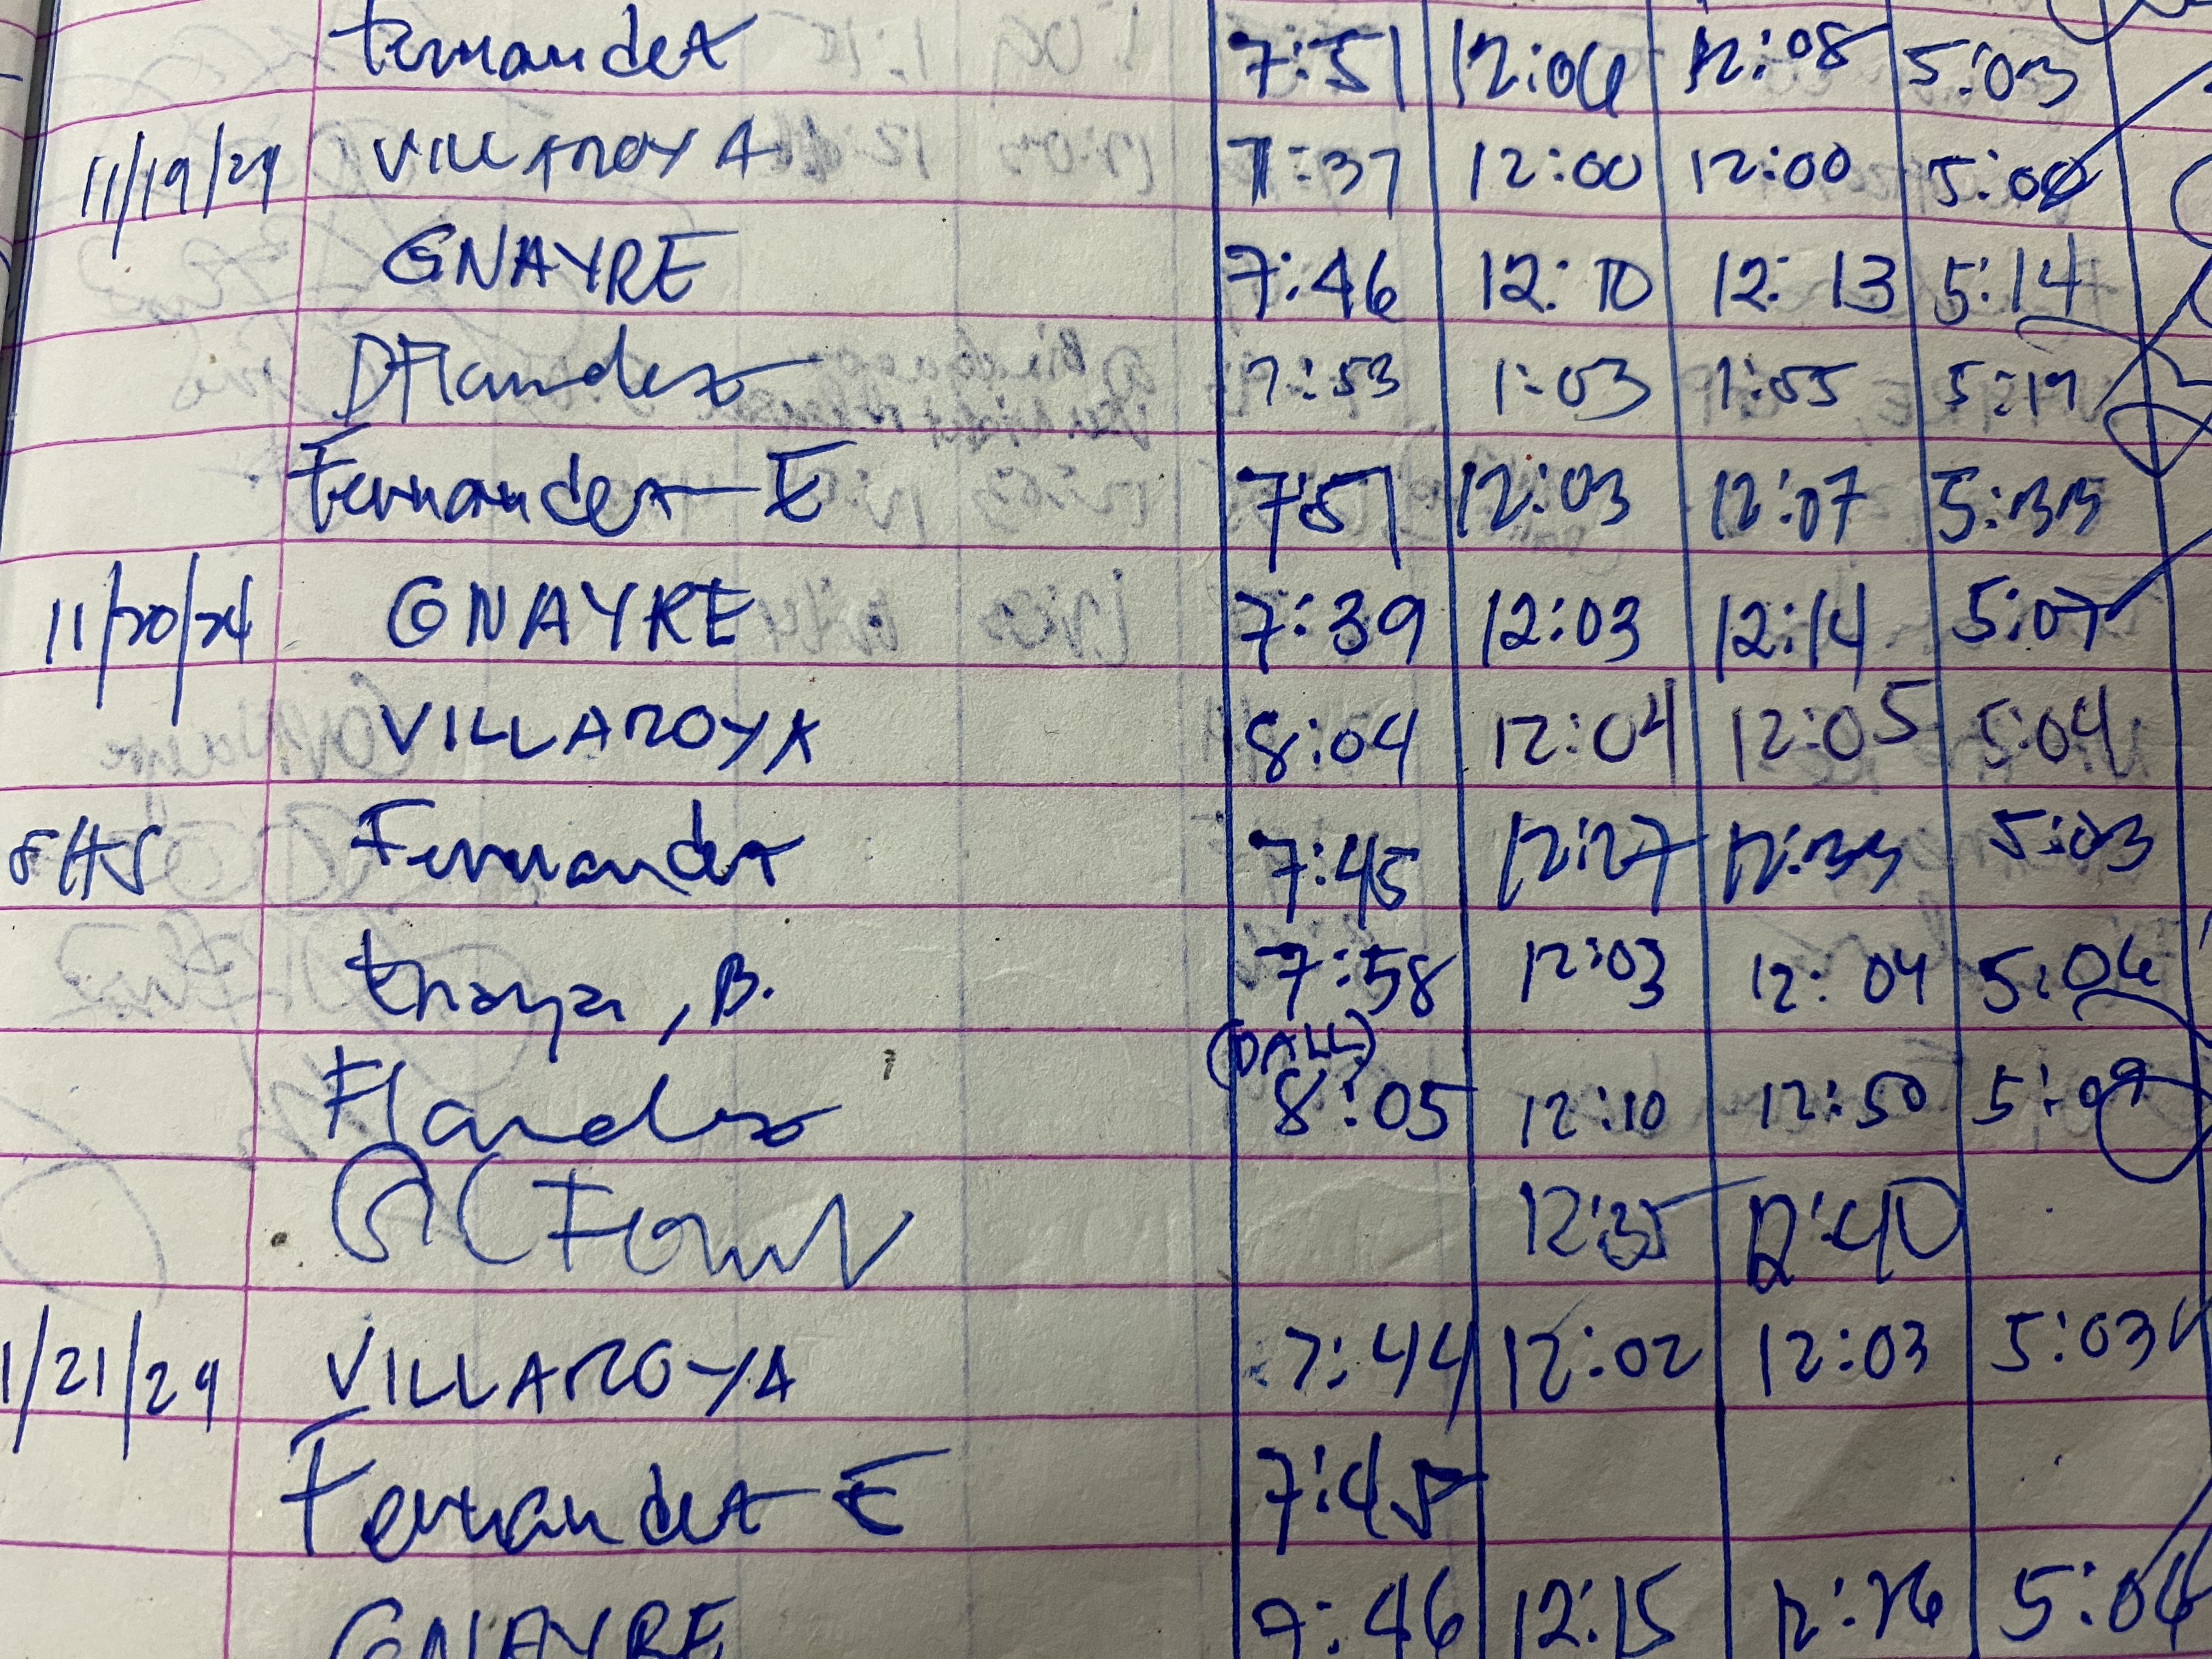 Fernandez 7:51 12:06 12:08 5:03
11/19/24 VILLAROYA 7:37 12:00 12:00 5:00
GNAYRE 7:46 12:10 12:13 5:14
DFlandez 7:53 1:03 1:55 5:19
Fernandez E 7:51 12:03 12:07 5:33
11/20/24 GNAYRE 7:39 12:03 12:14 5:07
VILLAROYA 8:04 12:04 12:05 5:04
Fernandez 7:45 12:27 12:33 5:03
B. 7:58 12:03 12:04 5:06
Flandez (DALL) 8:05 12:10 12:50 5:09
12:35 12:40
1/21/24 VILLAROYA 7:44 12:02 12:03 5:03
Fernandez E 7:45
GNAYRE 7:46 12:15 12:26 5:06